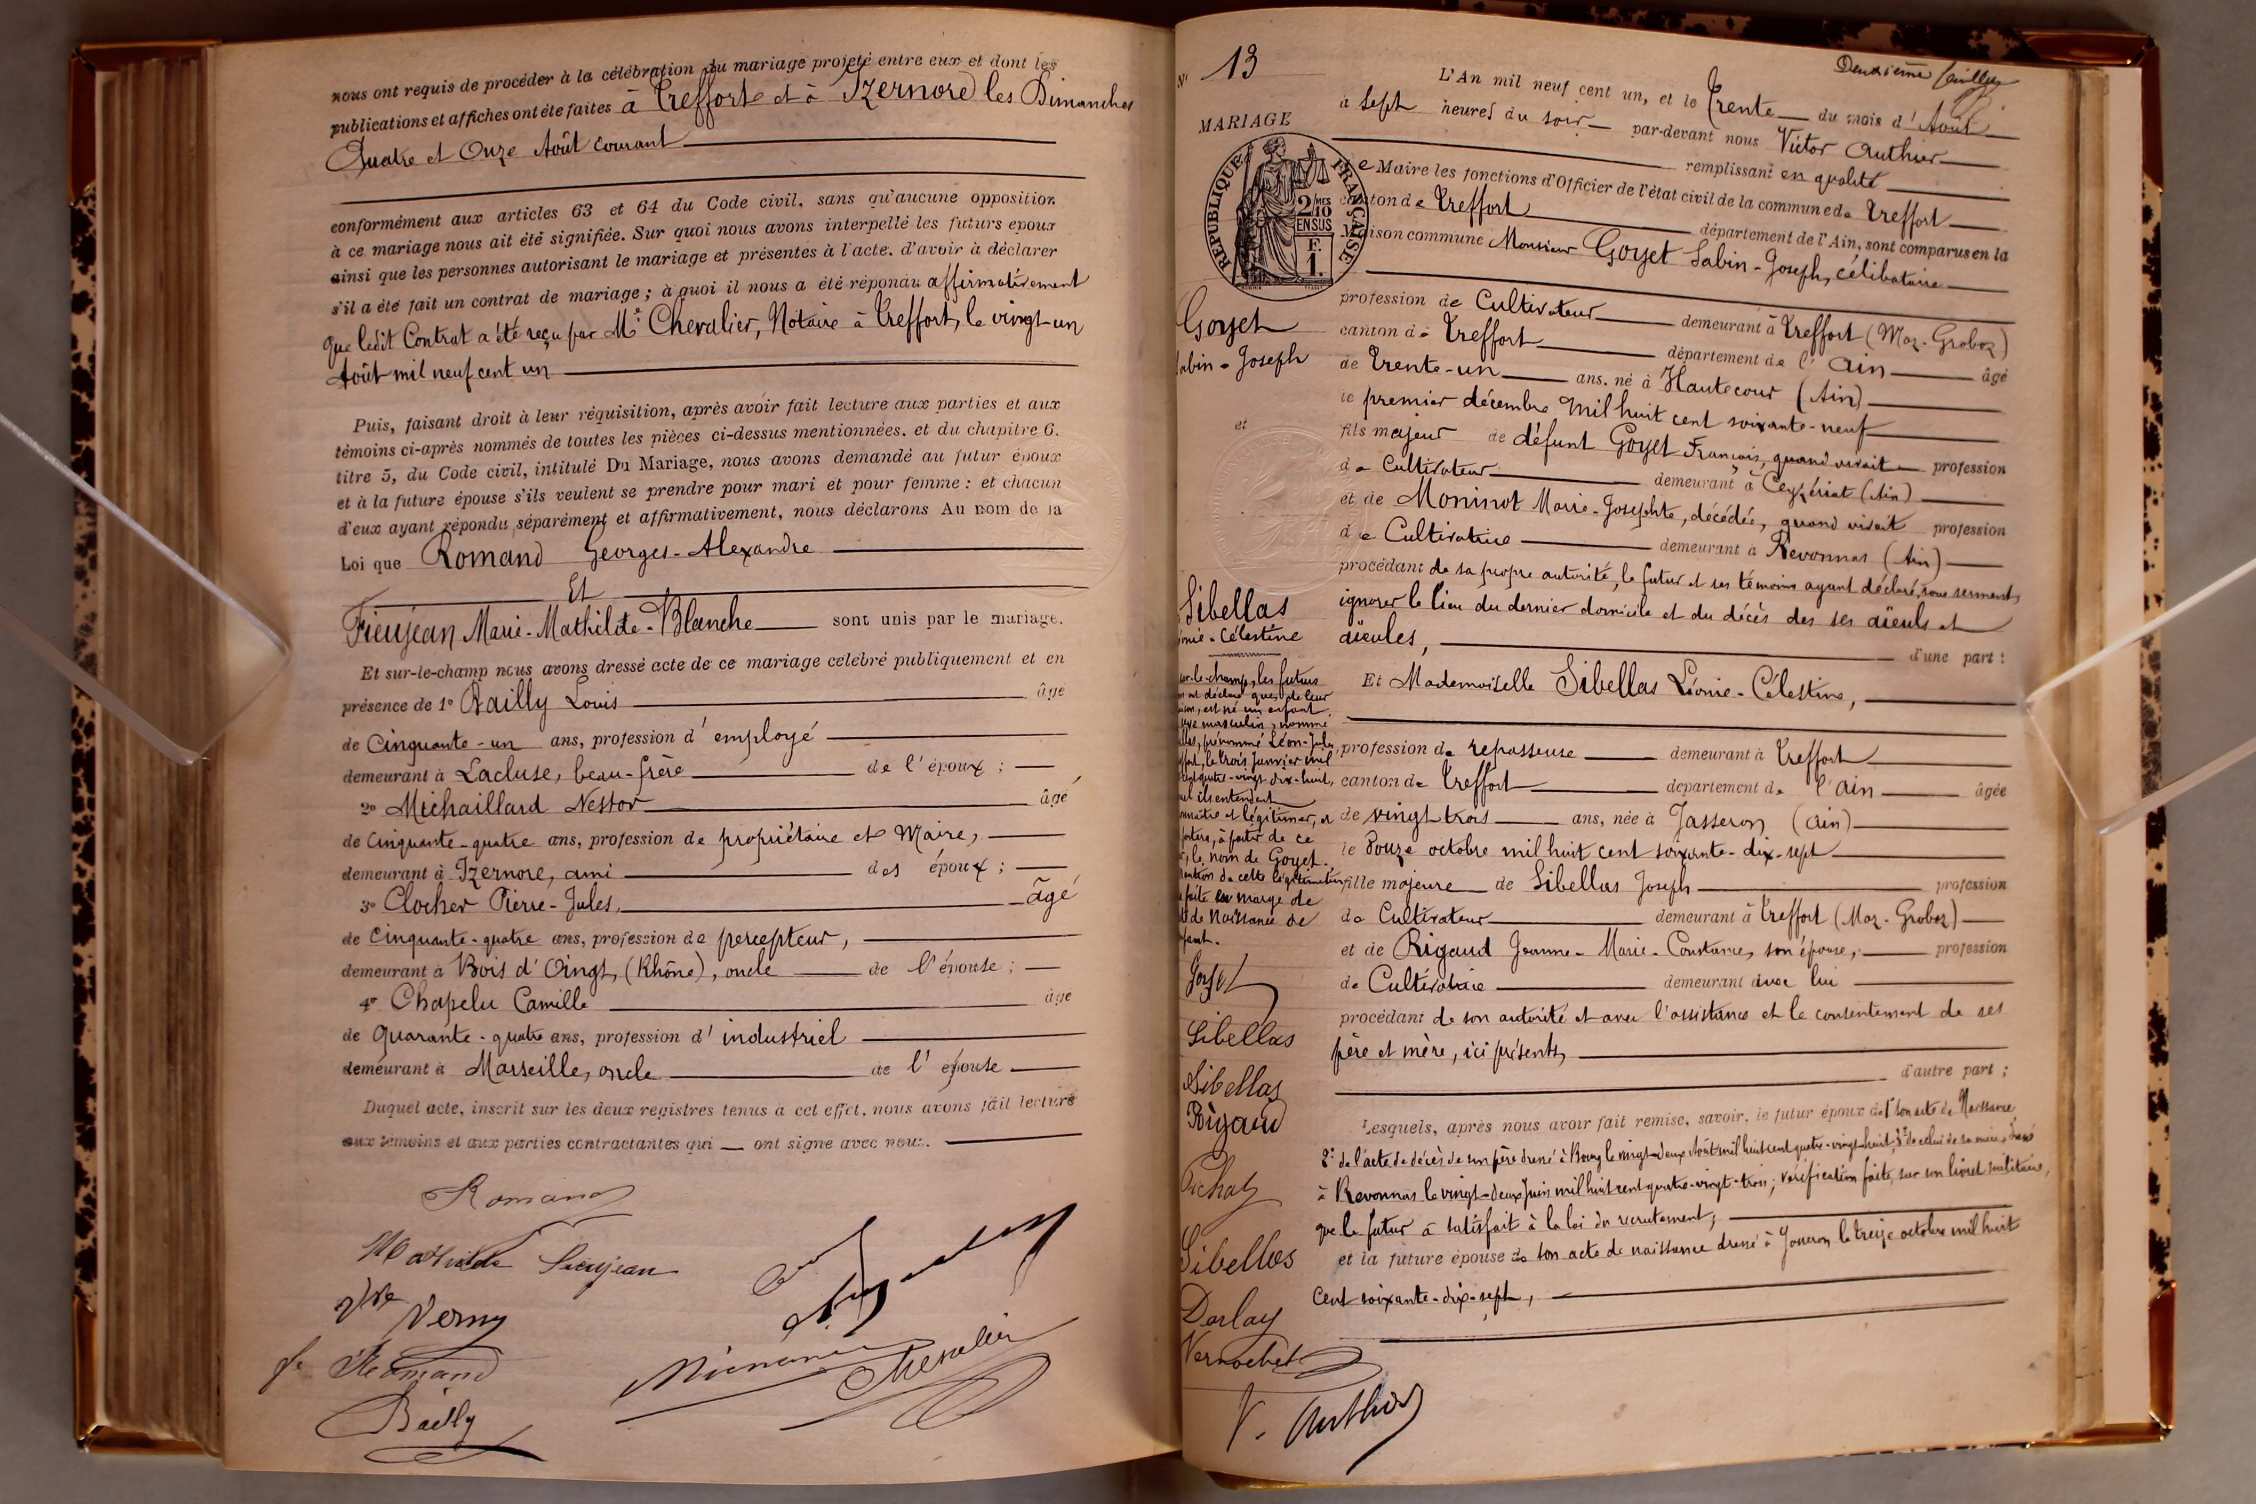 nous ont requis de procéder à la célébration du mariage projeté entre eux et dont les
publications et affiches ont été faites à Treffort et à Izernore les Dimanches
Quatre et Onze Août courant
conformément aux articles 63 et 64 du Code civil, sans qu'aucune opposition
à ce mariage nous ait été signifiée. Sur quoi nous avons interpellé les futurs époux
ainsi que les personnes autorisant le mariage et présentes à l'acte, d'avoir à déclarer
s'il a été fait un contrat de mariage ; à quoi il nous a été répondu affirmativement
que ledit Contrat a été reçu par Me Chevalier, Notaire à Treffort, le vingt-un
Août mil neuf cent un
Puis, faisant droit à leur réquisition, après avoir fait lecture aux parties et aux
témoins ci-après nommés de toutes les pièces ci-dessus mentionnées, et du chapitre 6,
titre 5, du Code civil, intitulé Du Mariage, nous avons demandé au futur époux
et à la future épouse s'ils veulent se prendre pour mari et pour femme : et chacun
d'eux ayant répondu séparément et affirmativement, nous déclarons Au nom de la
Loi que Romand Georges-Alexandre
Et
Fieujean Marie-Mathilde-Blanche sont unis par le mariage.
Et sur-le-champ nous avons dressé acte de ce mariage célébré publiquement et en
présence de 1° Bailly Louis âgé
de Cinquante-un ans, profession d'employé
demeurant à Lacluse, beau-frère de l'époux ;
2° Michaillard Nestor âgé
de Cinquante-quatre ans, profession de propriétaire et Maire,
demeurant à Izernore, ami des époux ;
3° Clocher Pierre-Jules, âgé
de Cinquante-quatre ans, profession de percepteur,
demeurant à Bois d'Oingt, (Rhône), oncle de l'épouse ;
4° Chapelu Camille âgé
de Quarante-quatre ans, profession d'industriel
demeurant à Marseille, oncle de l'épouse
Duquel acte, inscrit sur les deux registres tenus à cet effet, nous avons fait lecture
aux témoins et aux parties contractantes qui ont signé avec nous.
Romand
Mathilde Fieujean
Vve Verny
Romand
Bailly
Chevalier
Deuxième feuillet
N° 13
MARIAGE
RÉPUBLIQUE FRANÇAISE
2 MES 10 EN SUS
F. 1.
L'An mil neuf cent un, et le Trente du mois d'Août
à Sept heures du soir par-devant nous Victor Authier
remplissant en qualité
de Maire les fonctions d'Officier de l'état civil de la commune de Treffort
canton de Treffort département de l'Ain, sont comparus en la
Maison commune Monsieur Goyet Sabin-Joseph, célibataire
profession de Cultivateur demeurant à Treffort (Moz-Groboz)
canton de Treffort département de l'Ain âgé
de Trente-un ans, né à Hautecour (Ain)
le premier décembre mil huit cent soixante-neuf
fils majeur de défunt Goyet François, quand vivait profession
de Cultivateur demeurant à Ceyzériat (Ain)
et de Moninot Marie-Josephte, décédée, quand vivait profession
de Cultivatrice demeurant à Revonnas (Ain)
procédant de sa propre autorité, le futur et ses témoins ayant déclaré, sous serment,
ignorer le lieu du dernier domicile et du décès des ses aïeuls et
aïeules, d'une part :
Et Mademoiselle Sibellas Léonie-Célestine,
profession de repasseuse demeurant à Treffort
canton de Treffort département de l'Ain âgée
de vingt trois ans, née à Jasseron (Ain)
le Douze octobre mil huit cent soixante-dix-sept
fille majeure de Sibellas Joseph profession
de Cultivateur demeurant à Treffort (Moz-Groboz)
et de Rigaud Jeanne-Marie-Constance, son épouse, profession
de Cultivatrice demeurant avec lui
procédant de son autorité et avec l'assistance et le consentement de ses
père et mère, ici présents,
d'autre part ;
Lesquels, après nous avoir fait remise, savoir, le futur époux de 1° son acte de Naissance,
2° de l'acte de décès de son père dressé à Bourg le vingt-deux Août mil huit cent quatre-vingt-huit, 3° de celui de sa mère, dressé
à Revonnas le vingt-deux Juin mil huit cent quatre-vingt-trois ; vérification faite, sur son livret militaire,
que le futur a satisfait à la loi du recrutement ;
et la future épouse de son acte de naissance dressé à Jasseron le treize octobre mil huit
Cent soixante-dix-sept,
Goyet
Sabin-Joseph
et
Sibellas
Léonie-Célestine
sur-le-champ, les futurs
ont déclaré que, de leur
union, est né un enfant
sexe masculin, nommé
prénommé Léon-Jules
le trois Janvier mil
quatre-vingt-dix-huit,
ils entendent
reconnaître et légitimer, et
portera, à partir de ce
le nom de Goyet.
mention de cette légitimation
faite en marge de
de Naissance de
enfant.
Goyet
Sibellas
Sibellas
Rigaud
Pichat
Sibellas
Darlay
Vernochet
V. Authier